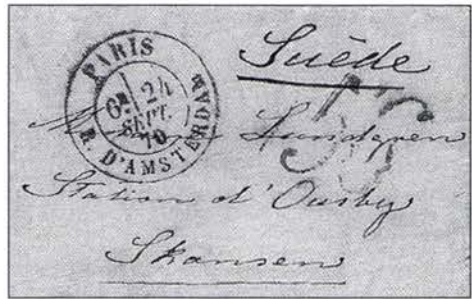 Suède
PARIS
6E 24
SEPT.
70
R. D'AMSTERDAM
Lundgren
Station d'Ousby
Skansen